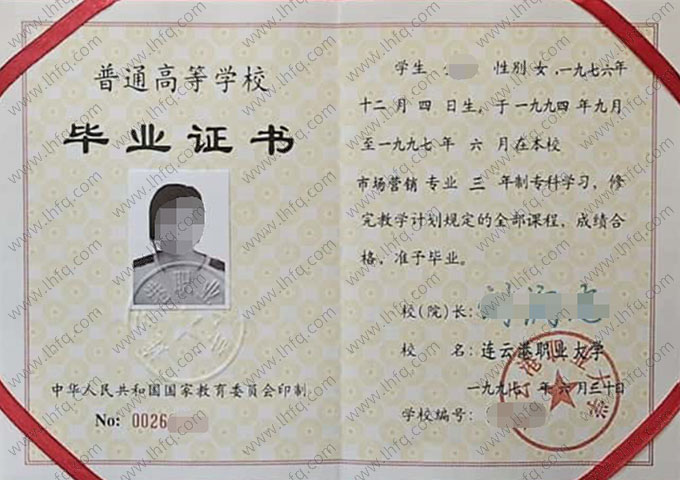 普通高等学校
毕业证书
中华人民共和国国家教育委员会印制
No: 0026
学生 性别 女,一九七六年
十二月 四 日生,于一九九四年九月
至一九九七年 六 月在本校
市场营销 专业 三 年制专科学习,修
完教学计划规定的全部课程,成绩合
格,准予毕业。
校(院)长:
校 名:连云港职业大学
一九九七年 六 月三十日
学校编号:
www.lhfq.com